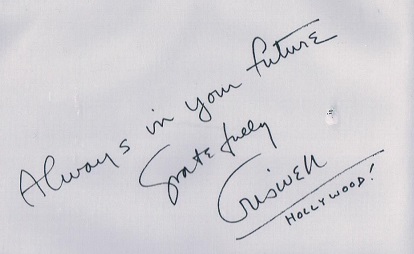 Always in your future
Gratefully
Criswell
HOLLYWOOD!